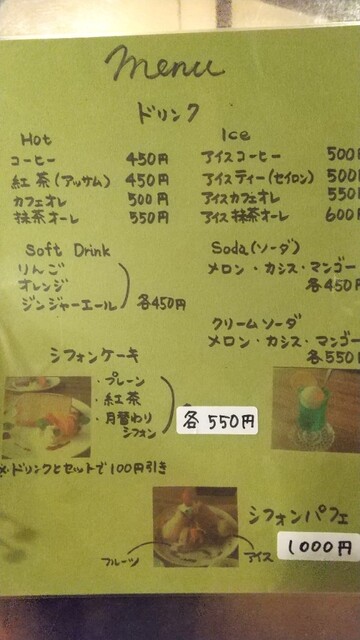 menu
ドリンク
Hot
コーヒー 450円
紅茶(アッサム) 450円
カフェオレ 500円
抹茶オーレ 550円
Ice
アイスコーヒー 500円
アイスティー(セイロン) 500円
アイスカフェオレ 550円
アイス抹茶オーレ 600円
Soft Drink
りんご
オレンジ
ジンジャーエール 各450円
Soda(ソーダ)
メロン・カシス・マンゴー
各450円
クリームソーダ
メロン・カシス・マンゴー
各550円
シフォンケーキ
・プレーン
・紅茶
・月替わり
シフォン
各550円
※ドリンクとセットで100円引き
シフォンパフェ
1000円
フルーツ
アイス